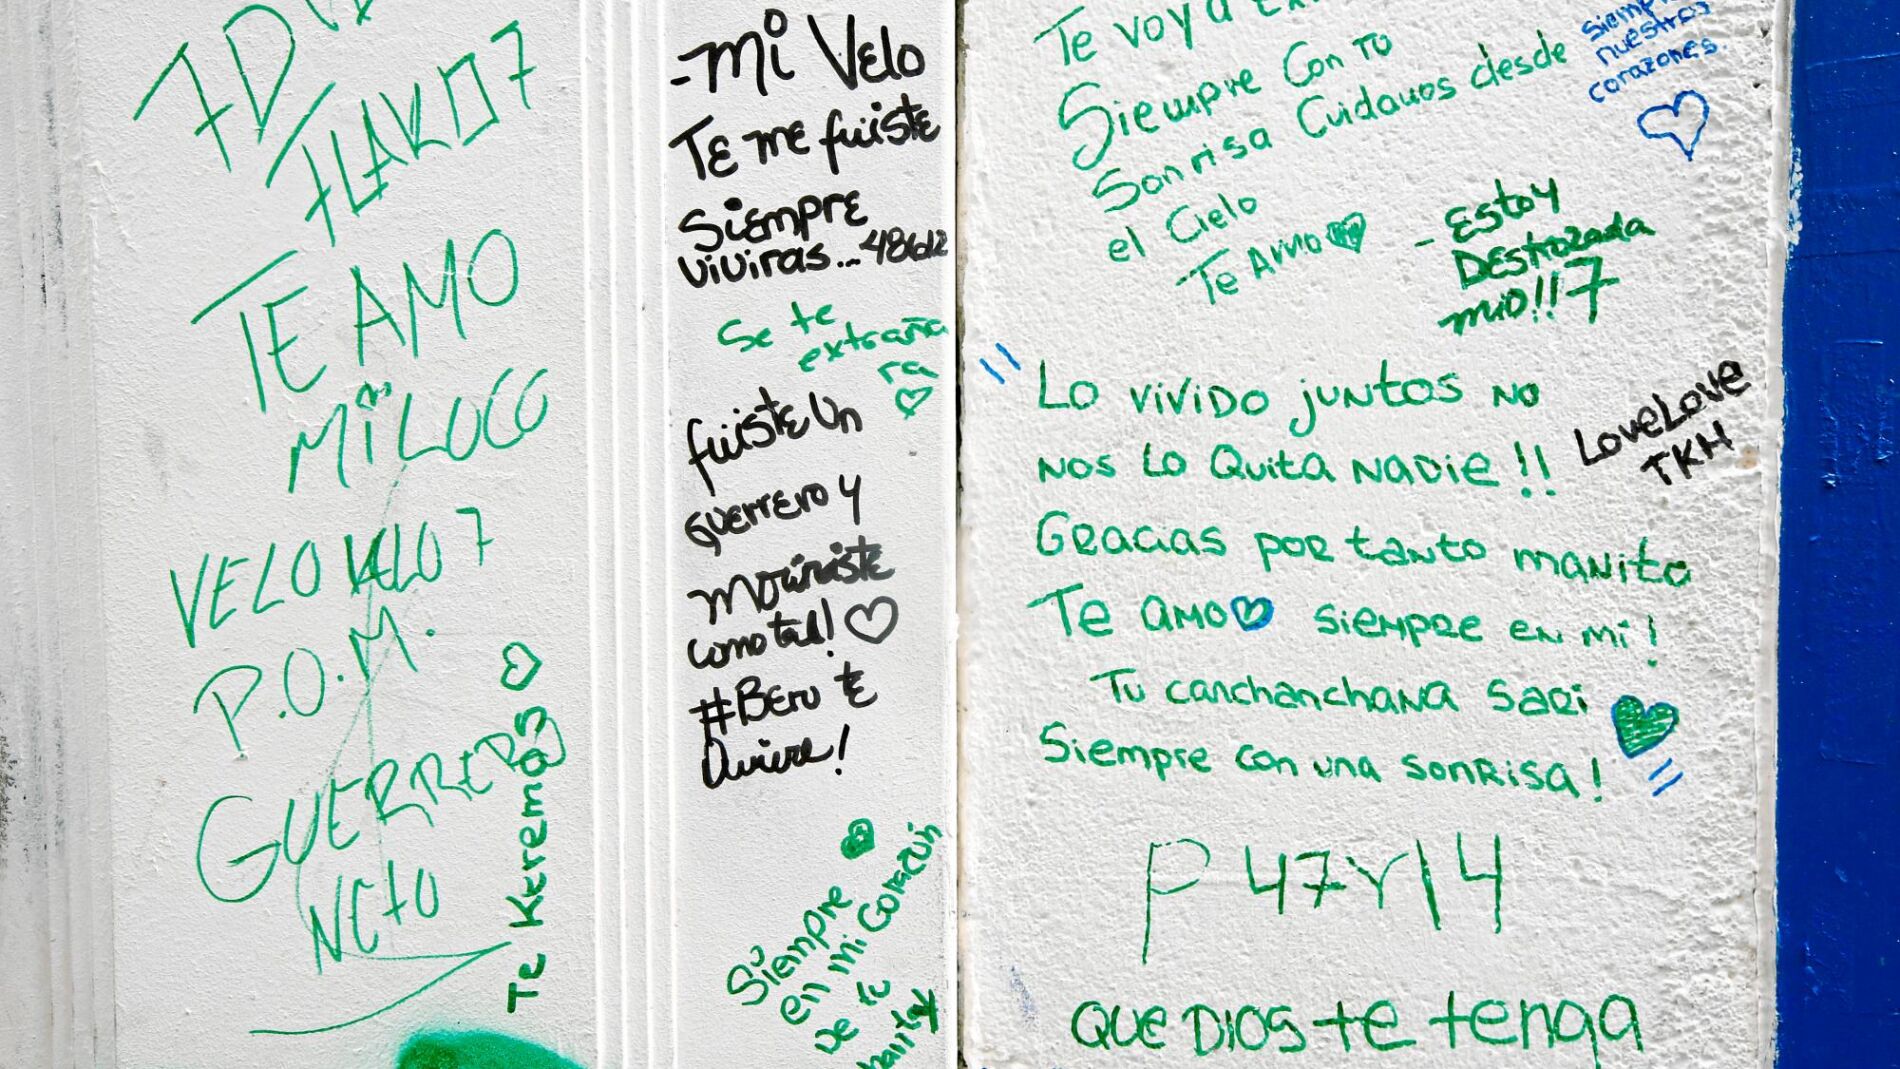 TE AMO
Mi LOCO
VELO VELO 7
P.O.M.
GUERRERO
NETO
Te Keremos
-Mi Velo
TE me fuiste
Siempre
viviras...
Se te
extraña
ra
fuiste Un
guerrero y
como tal!
#Beru te
Quiere!
Siempre
en mi Corazón
De te
Te voy a
Siempre Con TU
Sonrisa Cuidanos desde
el Cielo
Te Amo
siempre
nuestros
corazones.
- Estoy
Destrozada
mio!!7
"Lo vivido juntos no
nos lo Quita Nadie!!
Gracias por tanto manito
Te amo siempre en mi!
Tu canchanchana Sari
Siempre con una sonrisa!"
LoveLove
TKM
P 47Y14
QUE DIOS te tenga